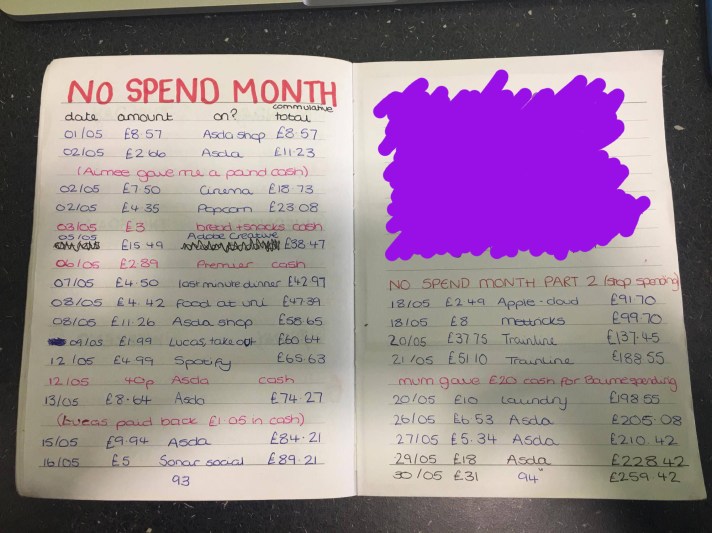 NO SPEND MONTH
commulative
date amount on? total
01/05 £8.57 Asda shop £8.57
02/05 £2.66 Asda £11.23
(Aimee gave me a pound cash)
02/05 £7.50 Cinema £18.73
02/05 £4.35 Popcorn £23.08
03/05 £3 bread + snacks cash
05/05 £15.49 Adobe Creative £38.47
06/05 £2.89 Premier cash
07/05 £4.50 last minute dinner £42.97
08/05 £4.42 food at uni £47.39
08/05 £11.26 Asda shop £58.65
09/05 £1.99 Lucas, take out £60.64
12/05 £4.99 Spotify £65.63
12/05 40p Asda cash
13/05 £8.64 Asda £74.27
(Lucas paid back £1.05 in cash)
15/05 £9.94 Asda £84.21
16/05 £5 Sonar social £89.21
93
NO SPEND MONTH PART 2 (stop spending)
18/05 £2.49 Apple-cloud £91.70
18/05 £8 mettricks £99.70
20/05 £37.75 Trainline £137.45
21/05 £51.10 Trainline £188.55
mum gave £20 cash for
20/05 £10 laundry £198.55
26/05 £6.53 Asda £205.08
27/05 £5.34 Asda £210.42
29/05 £18 Asda £228.42
30/05 £31 " £259.42
94